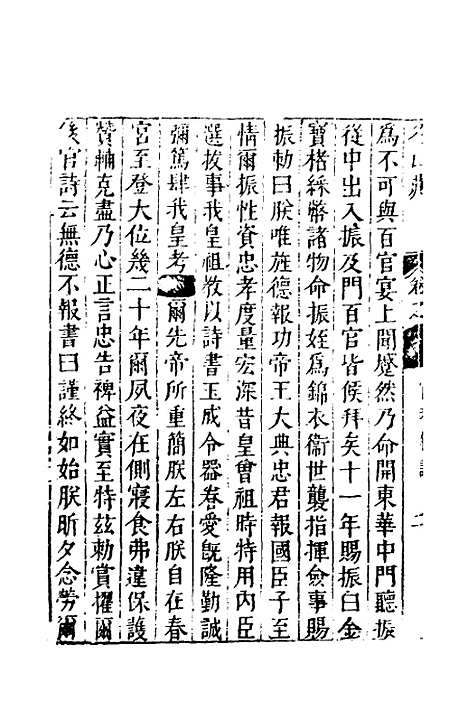 名山藏
爲不可與百官宴上聞蹙然乃命開東華中門聽振
從中出入振及門百官皆候拜矣十一年賜振白金
寶楮綵幣諸物命振姪爲錦衣衞世襲指揮僉事賜
振勅曰朕唯旌德報功帝王大典忠君報國臣子至
情爾振性資忠孝度量宏深昔皇曾祖時特用內臣
選拔事我皇祖教以詩書玉成令器眷愛旣隆勤誠
彌篤肆我皇考爾先帝所重簡朕左右朕自在春
宮至登大位幾二十年爾夙夜在側寢食弗違保護
贊輔克盡乃心正言忠告裨益實至特茲勅賞擢爾
後官詩云無德不報書曰謹終如始朕昕夕念勞爾